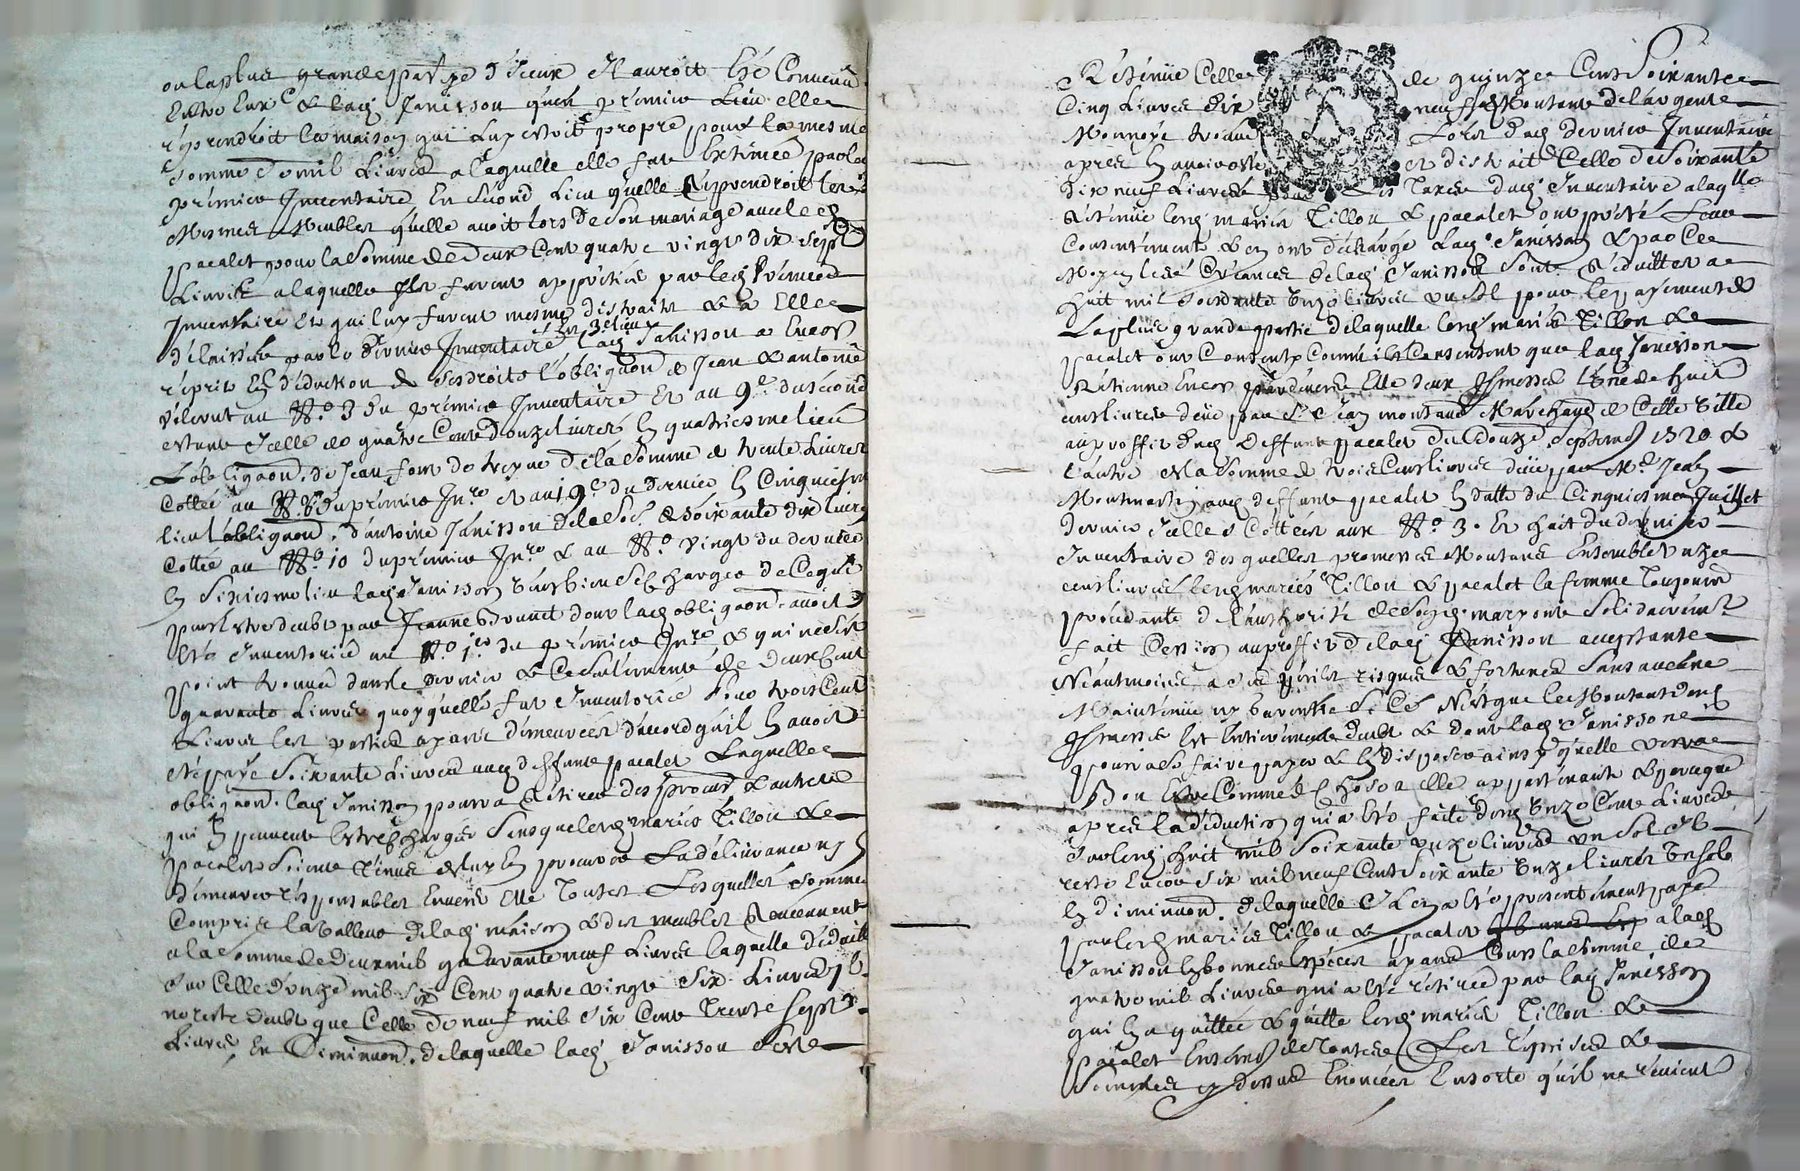 ou la plus grande partye d'Iceux Il auroit été Convenu
Entre Eux & lad. Janisson qu'en premier Lieu elle
reprendroit la maison qui luy estoit propre pour la mesme
somme de mil Livres a laquelle elle fut Extimée par le
premier Inventaire En second Lieu qu'elle Reprendroit les
Mesmes Meubles qu'elle avoit lors de son mariage avec led.
pacalet pour la somme de deux Cent quatre vingt dix sept
Livres a laquelle Ils furent appréciés par led. premier
Inventaire Et qui luy furent mesme distraits & a Elle
délaissés par le dernier Inventaire En 3e lieu lad. Janisson a Encor
repris En déduction de ses droits l'obligaon de Jean & antoine
au No 3 du premier Inventaire Et au 9e du second
estant Icelle de quatre Cent douze livres En quatriesme lieu
L'obligaon de Jean de la somme de trente Livres
Cottée au No 8 du premier Inre et au 19e du dernier En Cinquiesme
lieu l'obligaon d'antoine Janisson de la de soixante dix livres
Cottée au No 10 du premier Inre & au No vingt du dernier
En Sixiesme lieu lad. Janisson se charger de Ce qui
peut estre deubt par Jeanne dont lad. obligaon avoit
Eté Inventoriée au No 1er du premier Inre & qui ne s'est
point trouvée dans le dernier & Ce seulement de deux Cent
quarante Livres quoy qu'elle fut Inventoriée pour trois Cent
Livres les parties ayant demeurées d'accord qu'il En avoit
été payé soixante Livres aud. deffunt pacalet Laquelle
obligaon lad. Janisson pourra Retirer des procur. & autres
qui En peuvent estre Chargés sans que lesd. mariés Tillou &
pacalet soient tenus de luy En procurer La délivrance ny En
demeurer responsables Envers Elle Toutes Lesquelles sommes
Compris la valleur de lad. maison & des meubles Reviennent
a la somme de deux mil quarante neuf Livres laquelle déduite
sur Celle d'onze mil six Cent quatre vingt six Livres
ne reste deubt que Celle de neuf mil six Cent Trente sept
Livres En Diminuon de laquelle lad. Janisson
Retenüe Celle de quinze Cent Soixante
Cinq Livres dix neuf Montant de l'argent
Monnoyé trouvé Lors dud. dernier Inventaire
apres En avoir osté et distrait Celle de Soixante
dix neuf Livres dud. Inventaire a laqlle
Retenüe lesd. mariés Tillou & pacalet ont prété Leur
Consentement & en ont déchargé lad. Janisson & par Ce
Moyen les Créances de lad. Janisson sont Réduittes a
huit mil soixante onze livres un sol pour le payement de
La plus grande partie de laquelle lesd. mariés Tillou &
pacalet ont Consenty Comme ils Consentent que lad. Janisson
Retienne Encor pardevers Elle deux promesses l'une de huit
cent livres deüe par Sr Jean montaud Marchand de Cette Ville
au proffit dud. deffunt pacalet du douze Septemb 1720 &
l'autre de la somme de trois Cent livres deüe par Me Jean
Montmartin aud. deffunt pacalet En datte du Cinquiesme Juillet
dernier Icelles Cottées aux No 3. Et huit du dernier
Inventaire desquelles promesses Montant Ensemble unze
cent livres lesd. mariés Tillou & pacalet la femme Toujours
procédante de l'authorité de sond. mary ont Solidairemt
fait Cession au proffit de lad. Janisson acceptante
Néantmoins a ses périls risques & fortunes sans aucune
Maintenüe ny Garentie Si Ce N'est que le Montant desd.
promesses Est Entierement deubt & dont lad. Janisson
pourra se faire payer & En disposer ainsy qu'elle verra
Bon Estre Comme de Chose a elle appartenante &
apres la déduction qui a été faite desd. Unze Cent Livres
sur lesd. huit mil Soixante unze livres un Sol Il
reste Encor six mil neuf Cent Soixante Unze livres Un sol
En diminuon de laquelle Il En a été présentement payé
par lesd. mariés Tillou & pacalet a lad.
Janisson En bonnes Espèces ayant Cours la somme de
quatre mil Livres qui a été retirée par lad. Janisson
qui En a quitté & quitte lesd. mariés Tillou &
pacalet Ensemb de Toutes Les reprises &
Sommes cy dessus Enoncées En sorte qu'il ne revient